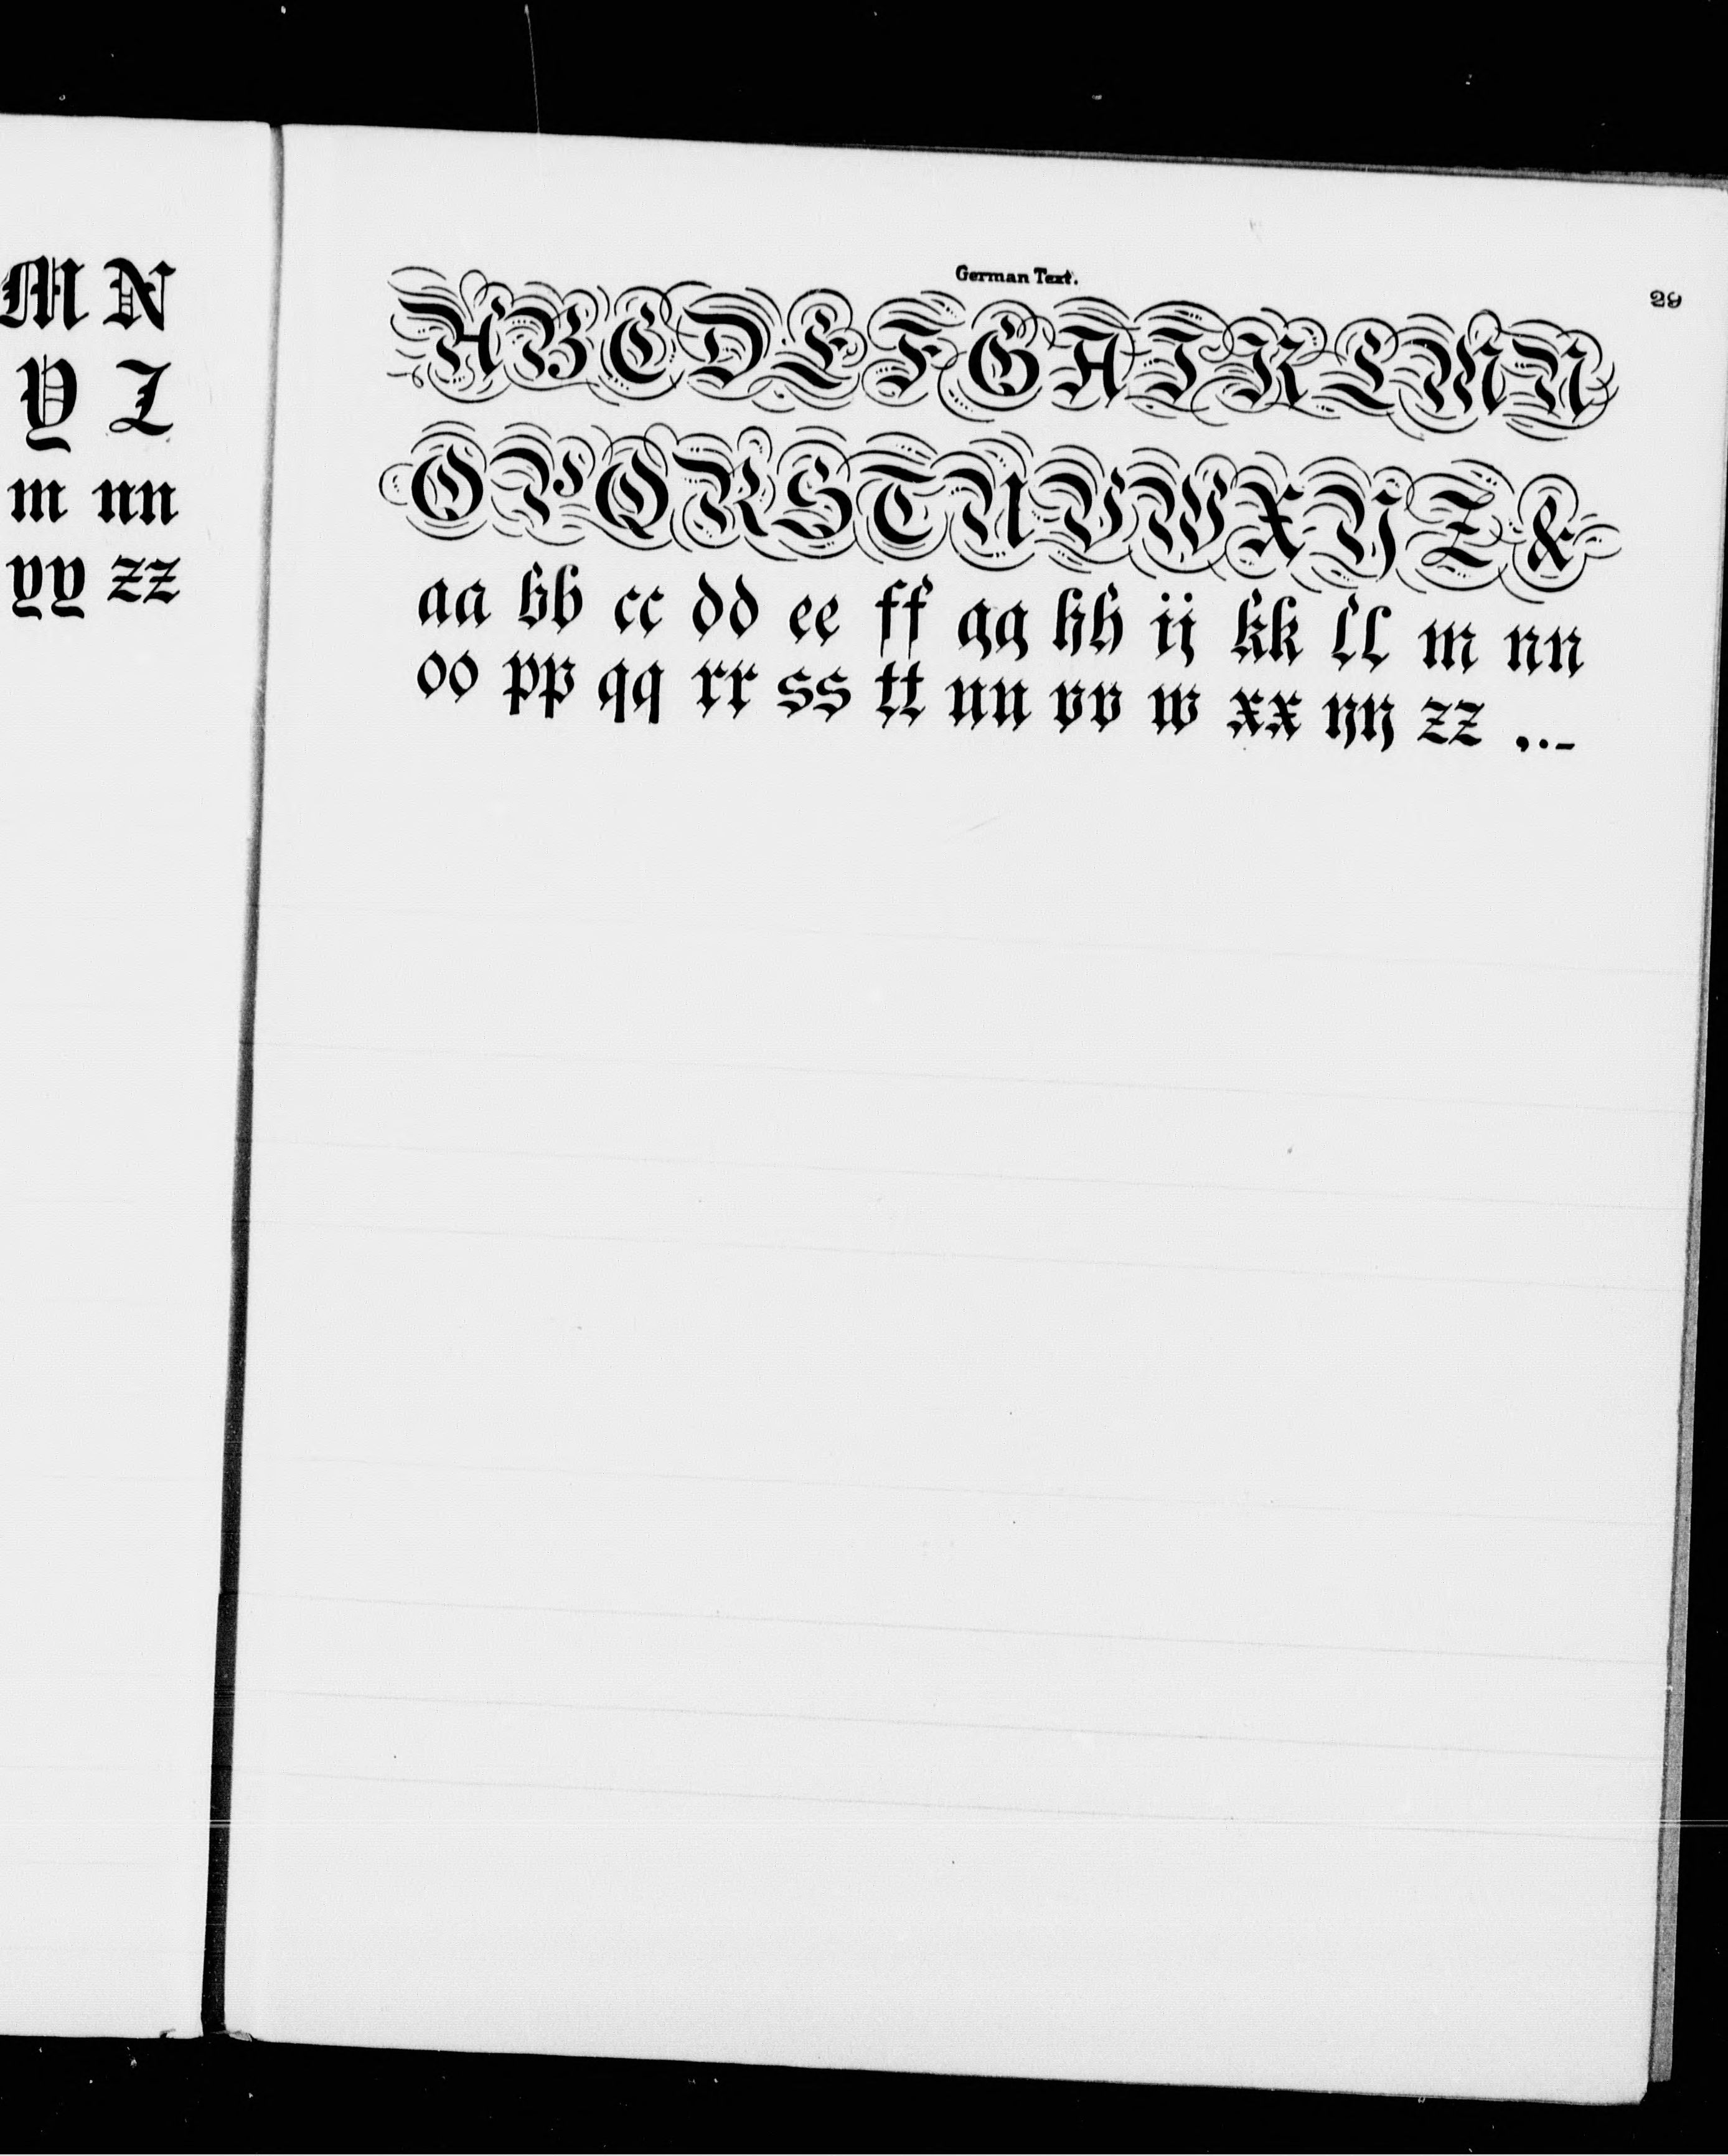 M N
Y Z
m nn
yy zz
German Text.
29
A B C D E F G H I K L M N
O P Q R S T U V W X Y Z &
aa bb cc dd ee ff gg hh ij kk ll m nn
oo pp qq rr ss tt uu vv w xx yy zz ,.-